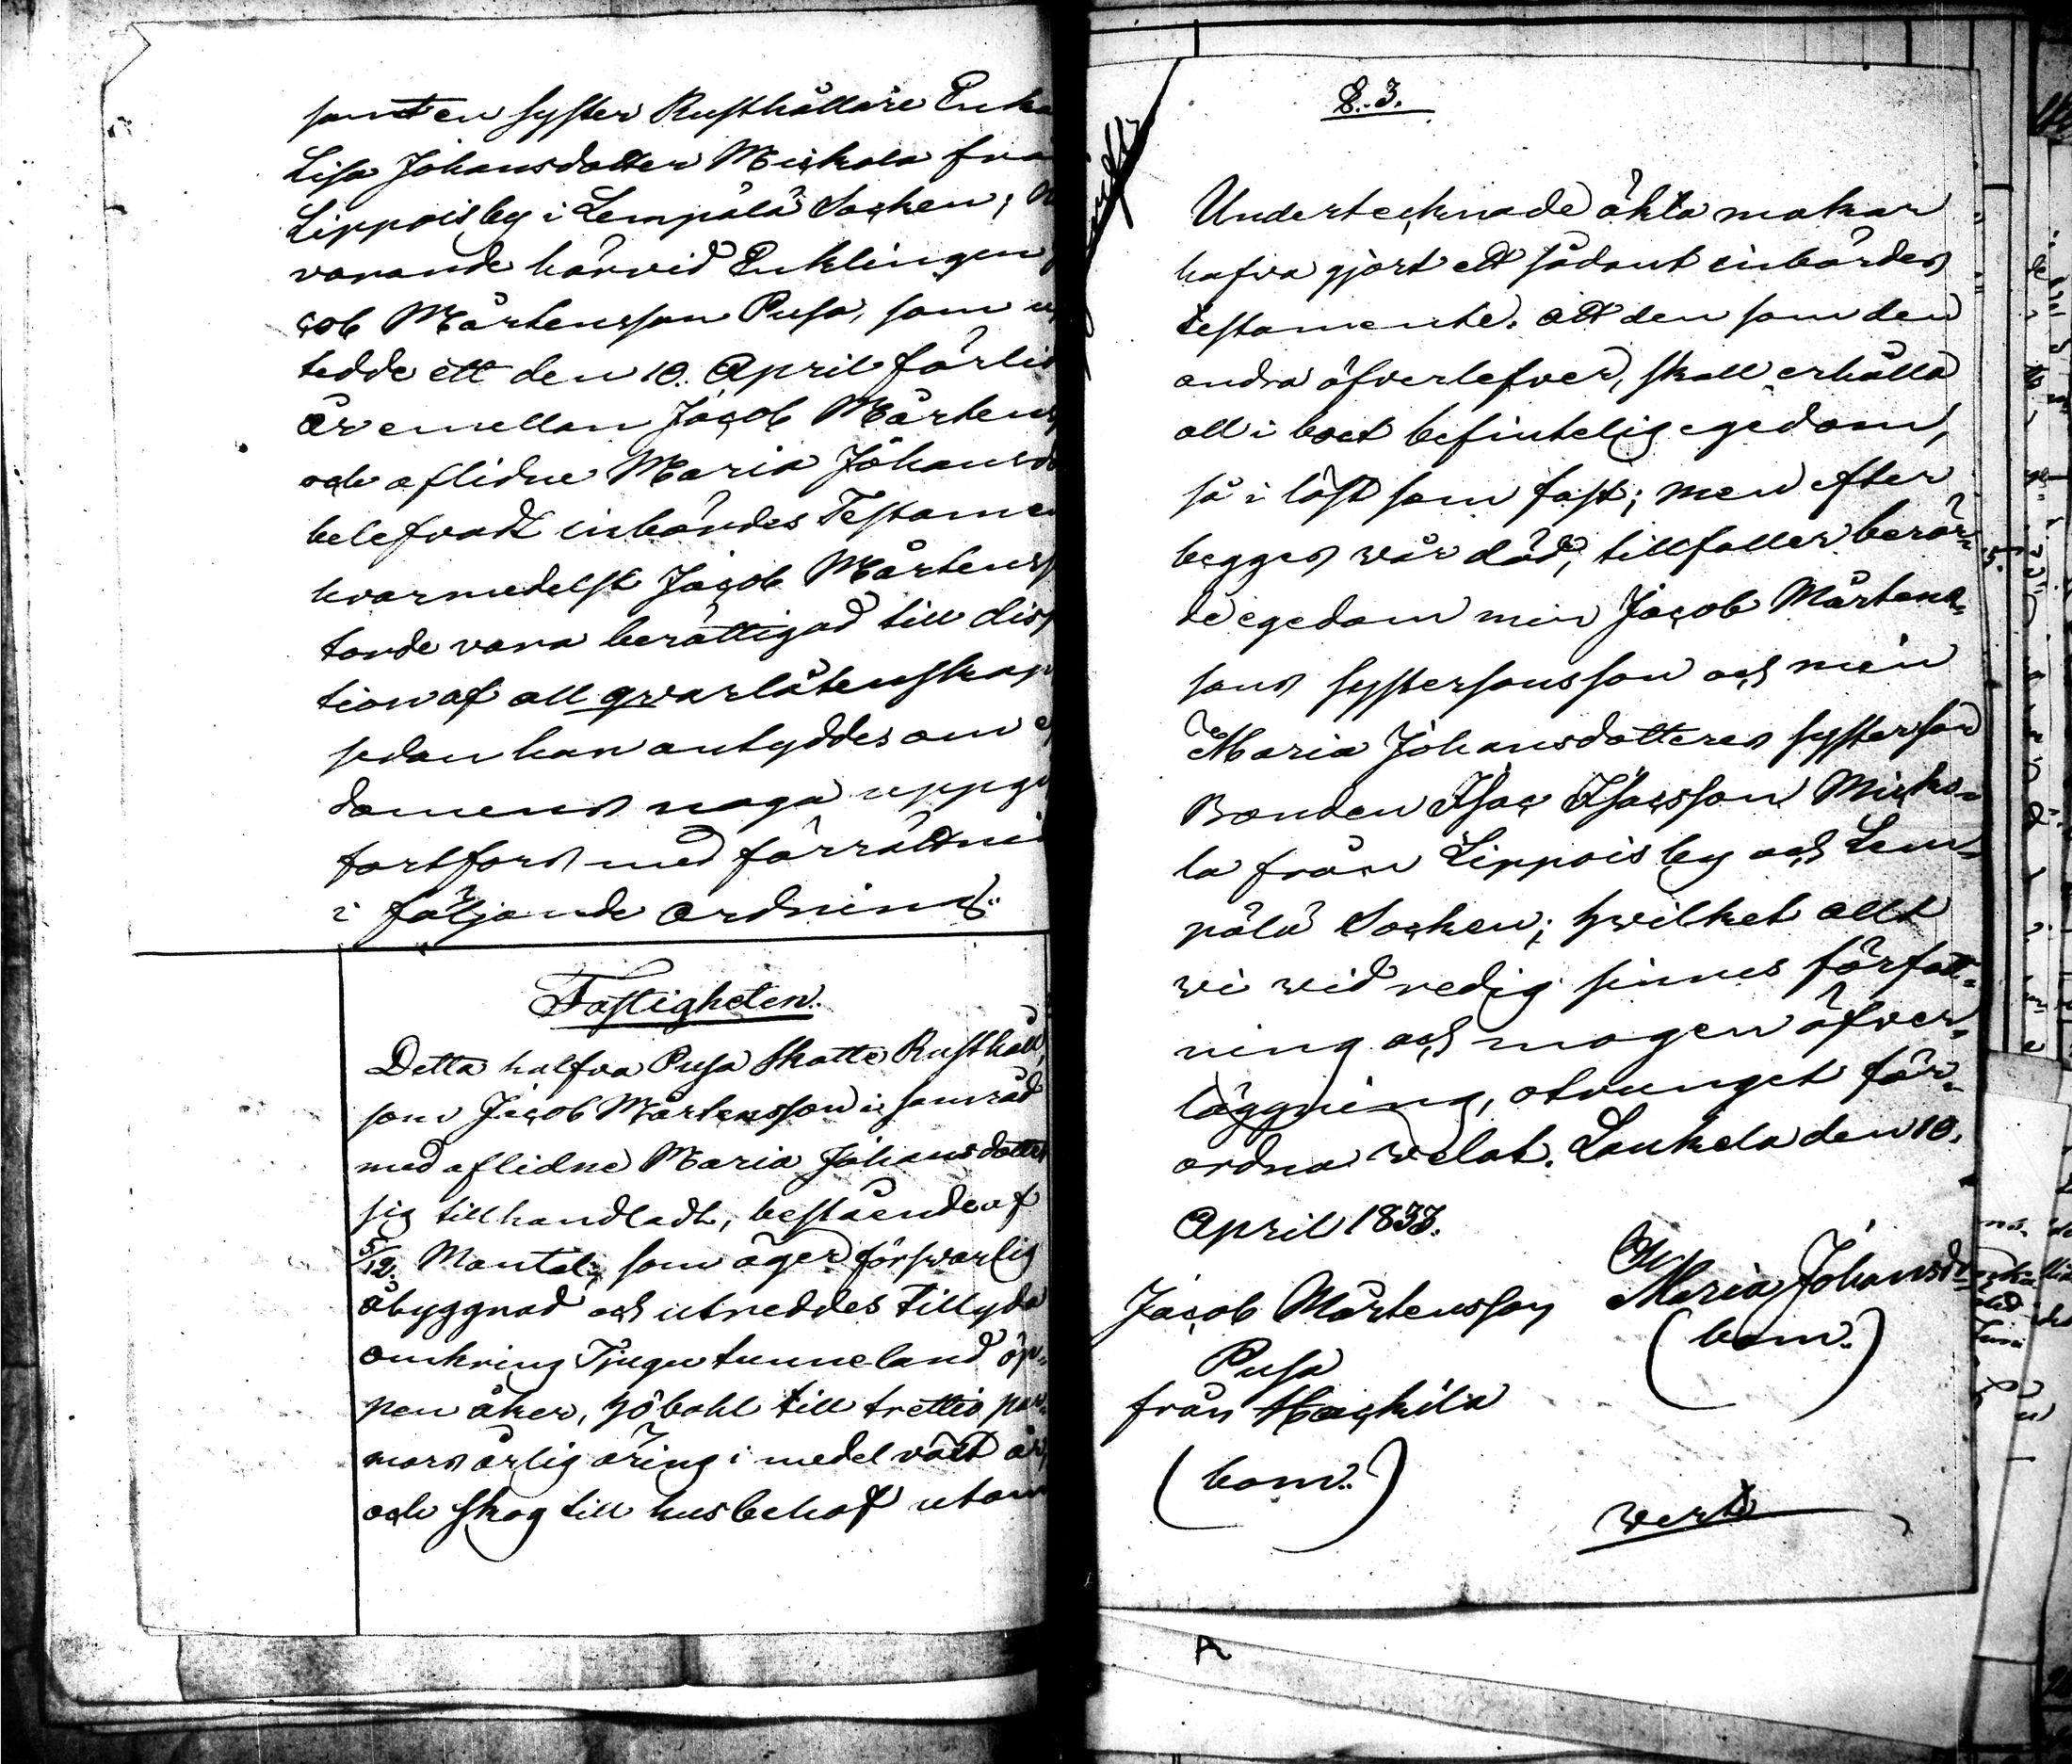 samt en syster Rusthållare Enka
Lisa Johansdotter Mickola frå
Lippois by i Lempälä Socken;
varande härvid Enklingen
cob Mårtensson Pusa, som
tedde ett den 10. April förlid
år emellan Jacob Mårtens
och aflidne Maria Johansdo
belefvadt inbördes Testamen
hvarmedelst Jacob Mårtens
torde vara berättigad till disp
tion af all qvarlåtenskap
sedan han antyddes om
domens noga uppgi
fortfors med förrättni
i följande ordning.
Fastigheten.
Detta halfva Pusa Skatte Rusthåll,
som Jacob Mårtensson i samråd
med aflidne Maria Johansdotter
sig tillhandladt, bestående af
5/12. Mantal, som äger försvarlig
åbyggnad och utreddes tillyda
omkring Tjugu tunneland öp-
pen åker, höbohl till trettio par-
mars årlig äring i medel växt år,
och skog till husbehof utom
§. 3.
Undertecknade äkta makar
hafva gjort ett sådant inbördes
testamente. att den som den
andra öfverlefver, skall erhålla
all i boet befintelig egedom,
så i löst som fast; men efter
begges vår död, tillfaller berör-
de egedom min Jacob Mårtens-
sons systersonsson och min
Maria Johansdotters systerson
Bonden Isac Isacsson Micko-
la från Lippois by och Lem-
pälä Socken; hwilket allt
wi wid redig sinnes författ-
ning och mogen öfver-
läggning, otvunget för-
ordna welat. Laukela den 10.
April 1833.
Jacob Mårtensson Maria Johansd
Pusa (bom.)
från
(bom.)
vert